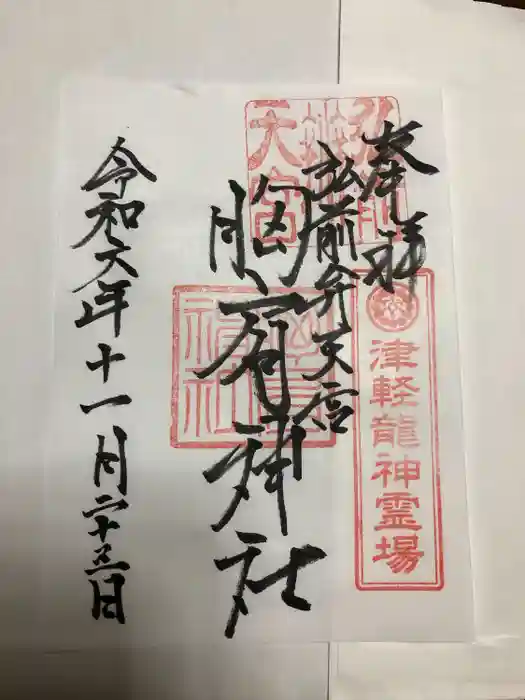 奉拝
津軽龍神霊場
弘前弁天宮
胸肩神社
令和六年十一月二十五日